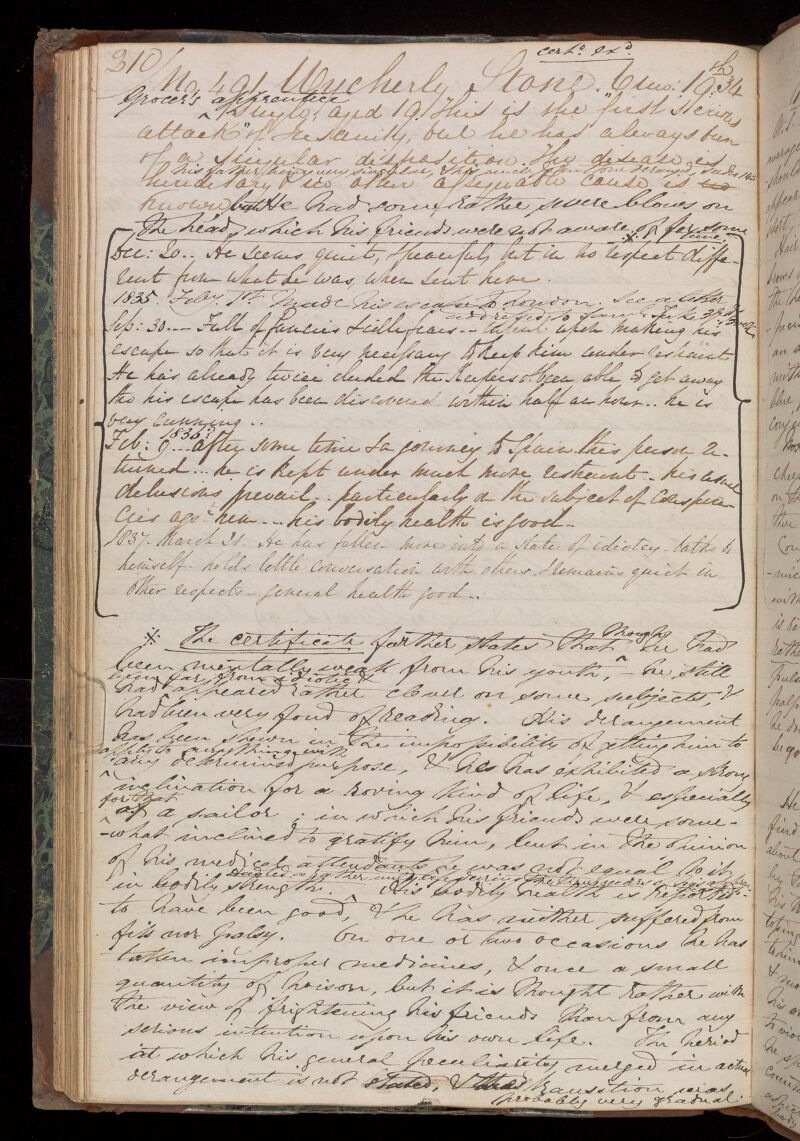 210
certe. exd.
No 491 Wycherly Stone. 6 mo: 19th 34
Grocer's apprentice
Single, aged 19. This is the "first serious
attack" of Insanity, but he has "always been
of a singular disposition." The disease is
his father being very singular, & his uncle
hereditary & no other assignable cause is
known but He had some rather severe blows on
the head, which his friends were not aware of for some
time
Dec: 20.. He seems quiet, & peaceful, but in no respect diffe-
rent from what he was, when sent here.
1835. Feby. 1st. Made his escape to London. See a letter
addressed to Saml. Tuke
Sep: 30... Full of fancies & idle fears -- intent upon making his
escape so that it is very necessary to keep him under restraint
He has already twice eluded the Keepers & been able to get away
tho his escape has been discovered within half an hour.. he is
very cunning..
1836.
Feb: 9... after some time & a journey to Spain this person re-
turned... he is kept under much more restraint - his usual
delusions prevail.. particularly on the subject of conspira-
cies agst him --- his bodily health is good..
1837. March 21. He has fallen more into a state of idiotcy - talks to
himself - holds little conversation with others, & remains quiet in
other respects - general health good..
The certificate further states that though he had
been mentally weak from his youth, - he still
been far from idiotic &
had appeared rather clever on some subjects, &
had been very fond of reading. His derangement
has been shewn in the impossibility of getting him to
apply to anything with
any determined purpose, & he has exhibited a strong
inclination for a roving kind of life, & especially
for that
of a sailor; in which his friends were some-
-what inclined to gratify him, but in the opinion
of his medical attendants he was not equal to it
in bodily strength. His bodily health is reported
to have been good, & he has neither suffered from
fits nor palsy. On one or two occasions he has
taken improper medicines, & once a small
quantity of poison, but it is thought rather with
the view of frightening his friends than from any
serious intention upon his own life. The period
at which his general peculiarity merged in actual
derangement is not stated, & the transition was
probably very gradual.